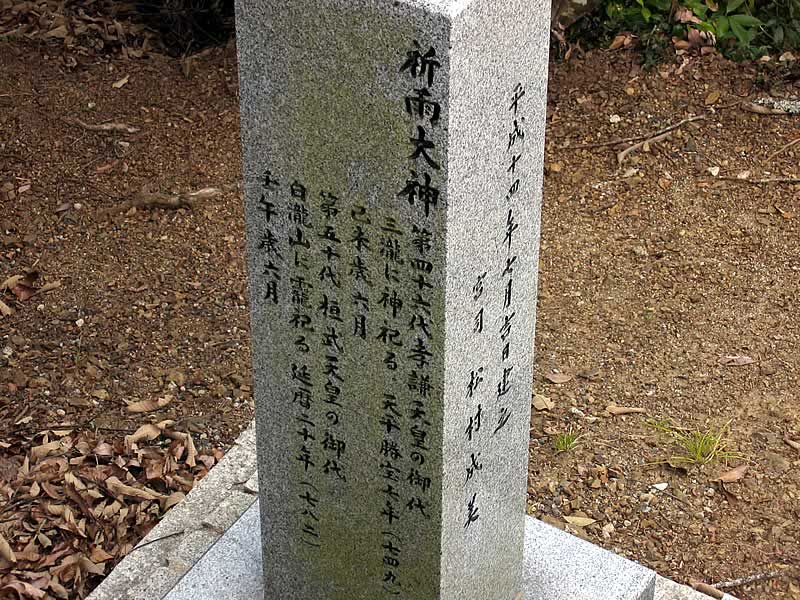 祈雨大神
第四十六代孝謙天皇の御代
三瀧に神祀る 天平勝宝七年(七四九)
己未歳六月
第五十代桓武天皇の御代
白瀧山に靈祀る 延暦二十年(七八二)
壬午歳六月
平成十四年七月吉日建立
宮司 松村成